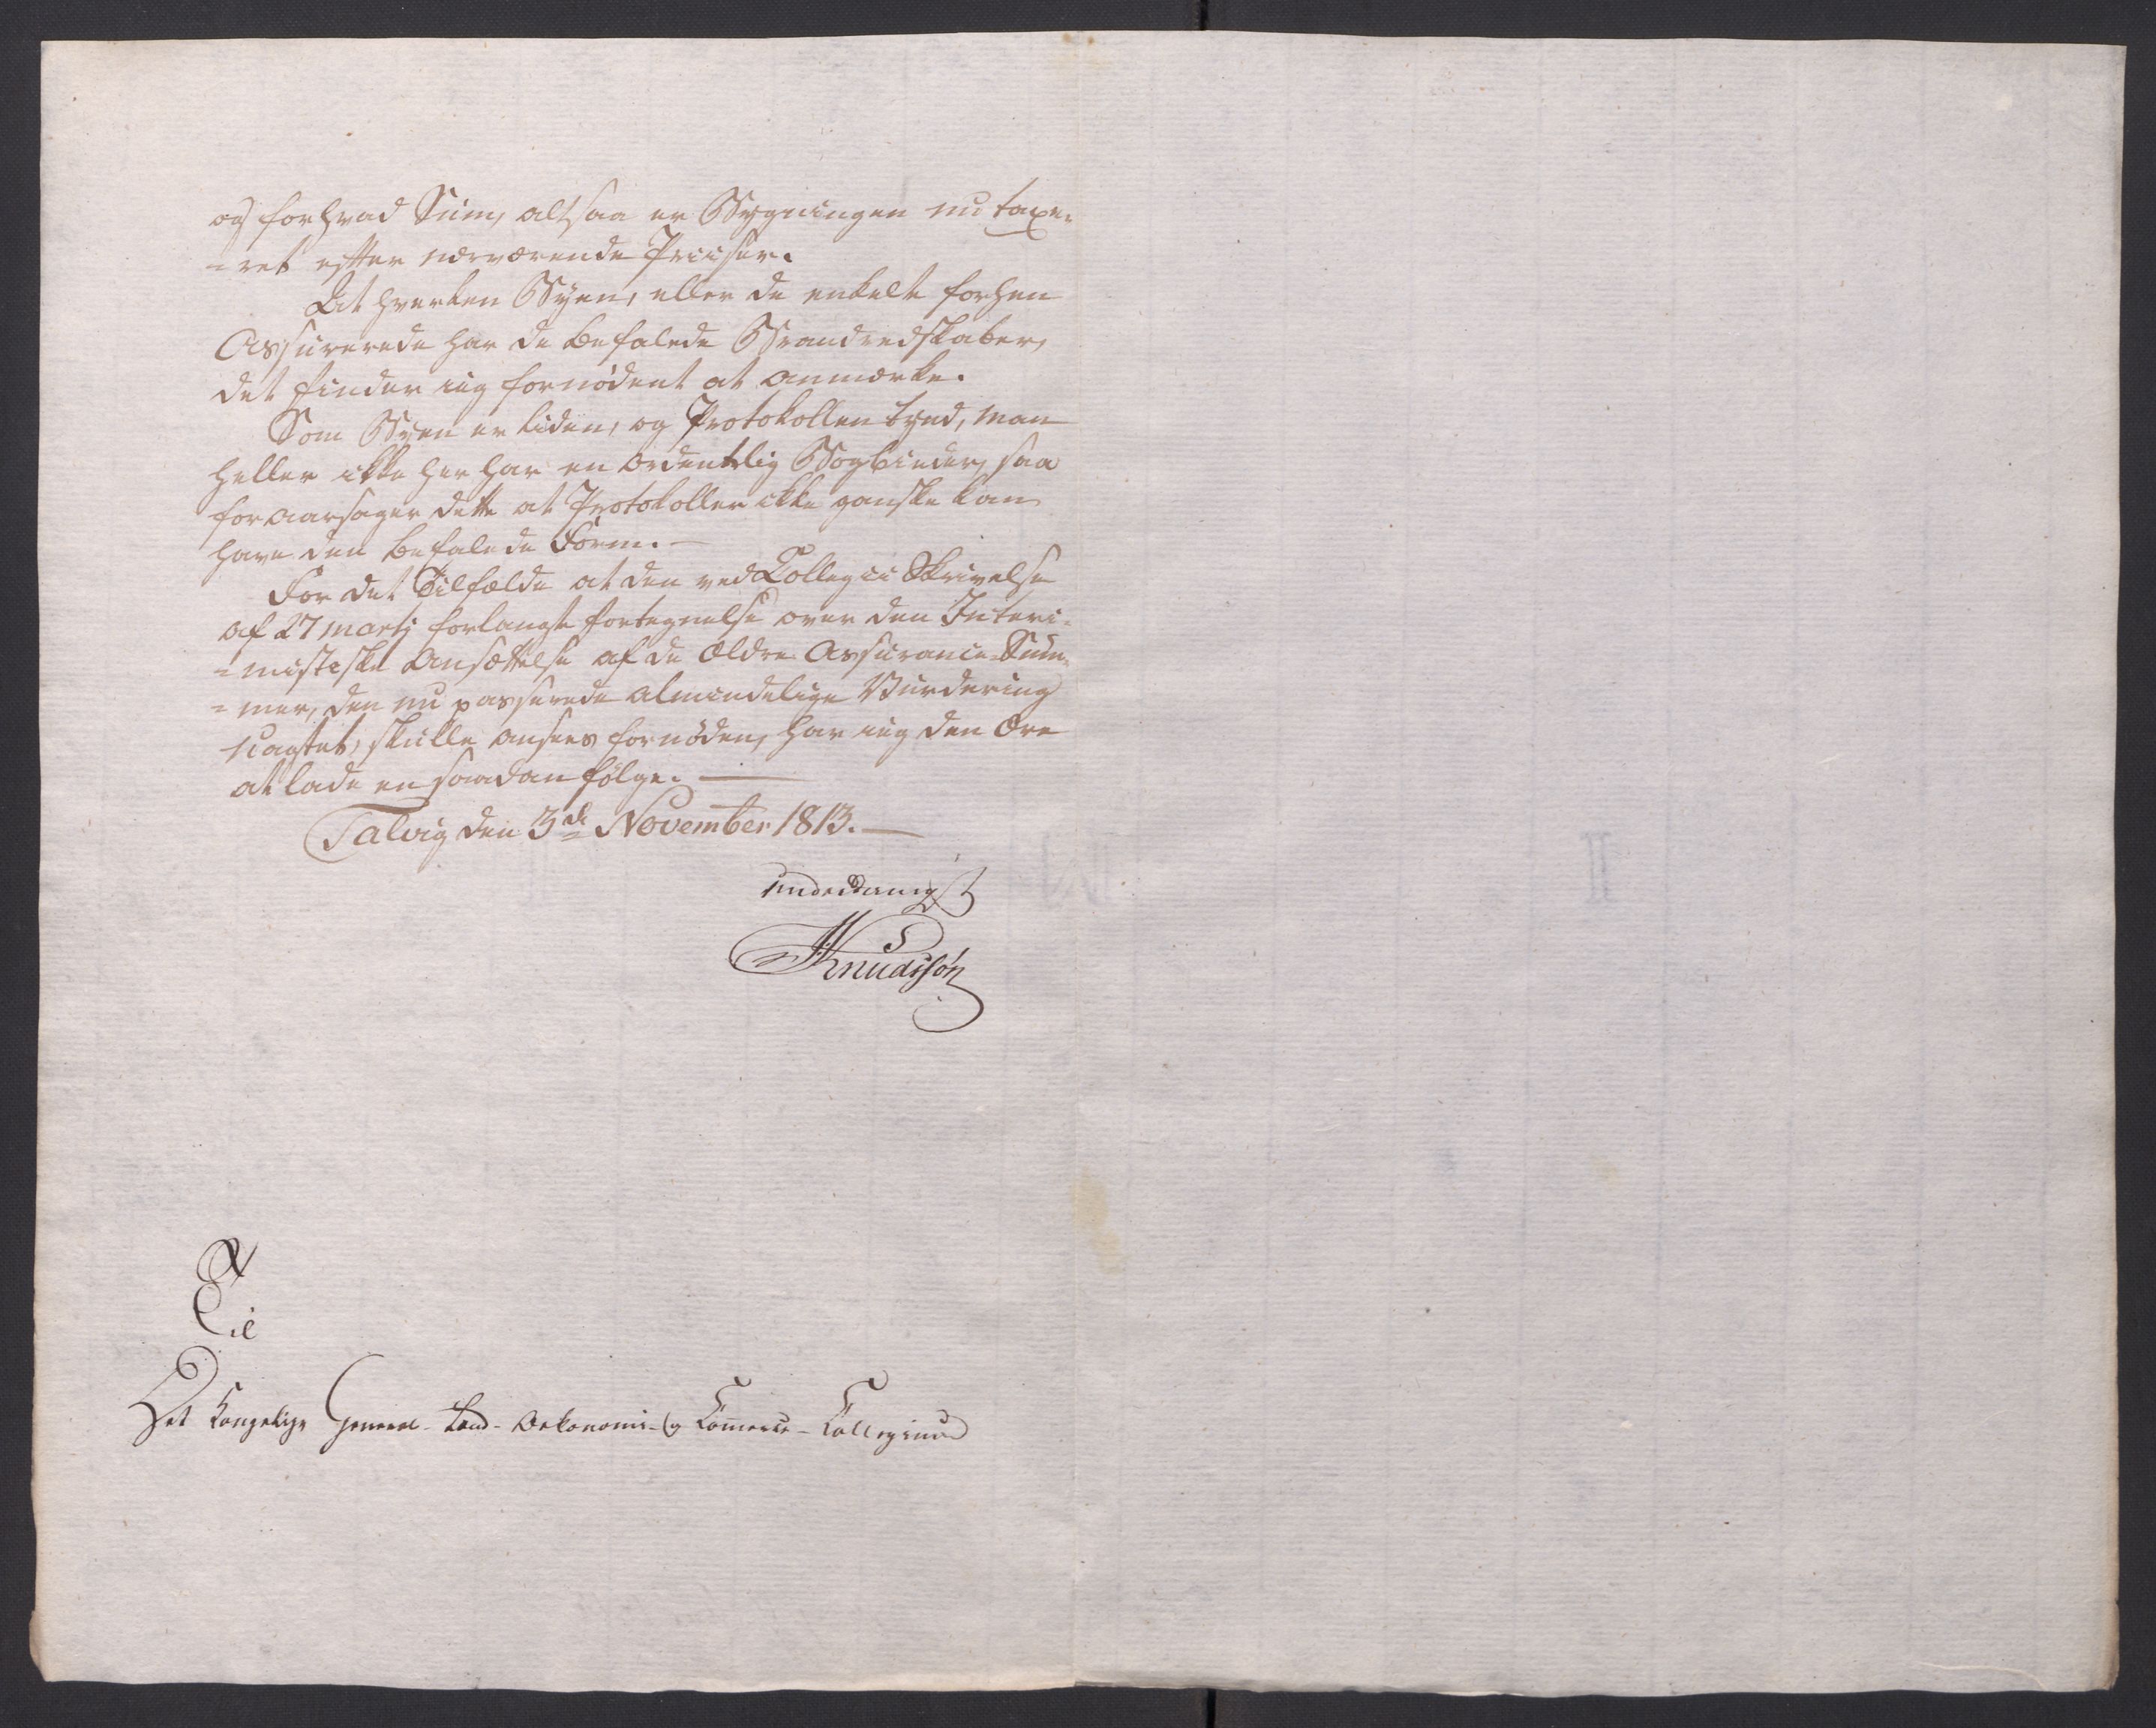 og for hvad Sum, altsaa er Bygningen nu taxe-
-ret efter nærværende Priiser.
At hverken Byen, eller de enkelte forhen
Assurerede har de befalede Brandredskaber,
det finder ieg fornødent at anmærke.
Som Byen er liden, og Protokollen tynd, man
heller ikke her har en ordentlig Bogbinder, saa
foraarsager dette at Protokollen ikke ganske kan
have den befalede Form. —
For det Tilfælde at den ved Collegii Skrivelse
af 27 Martj forlangte Fortegnelse over den Interi-
-mistiske Ansættelse af de ældre Assurance-Sum-
-mer, den nu passerede almindelige Vurdering
uagtet, skulle ansees fornøden, har ieg den Ære
at lade en saadan følge. —
Talvig den 3de November 1813. —
underdanigst
Knudssøn
Til
Det Kongelige General-Land-Oekonomi- og Commerce-Collegium